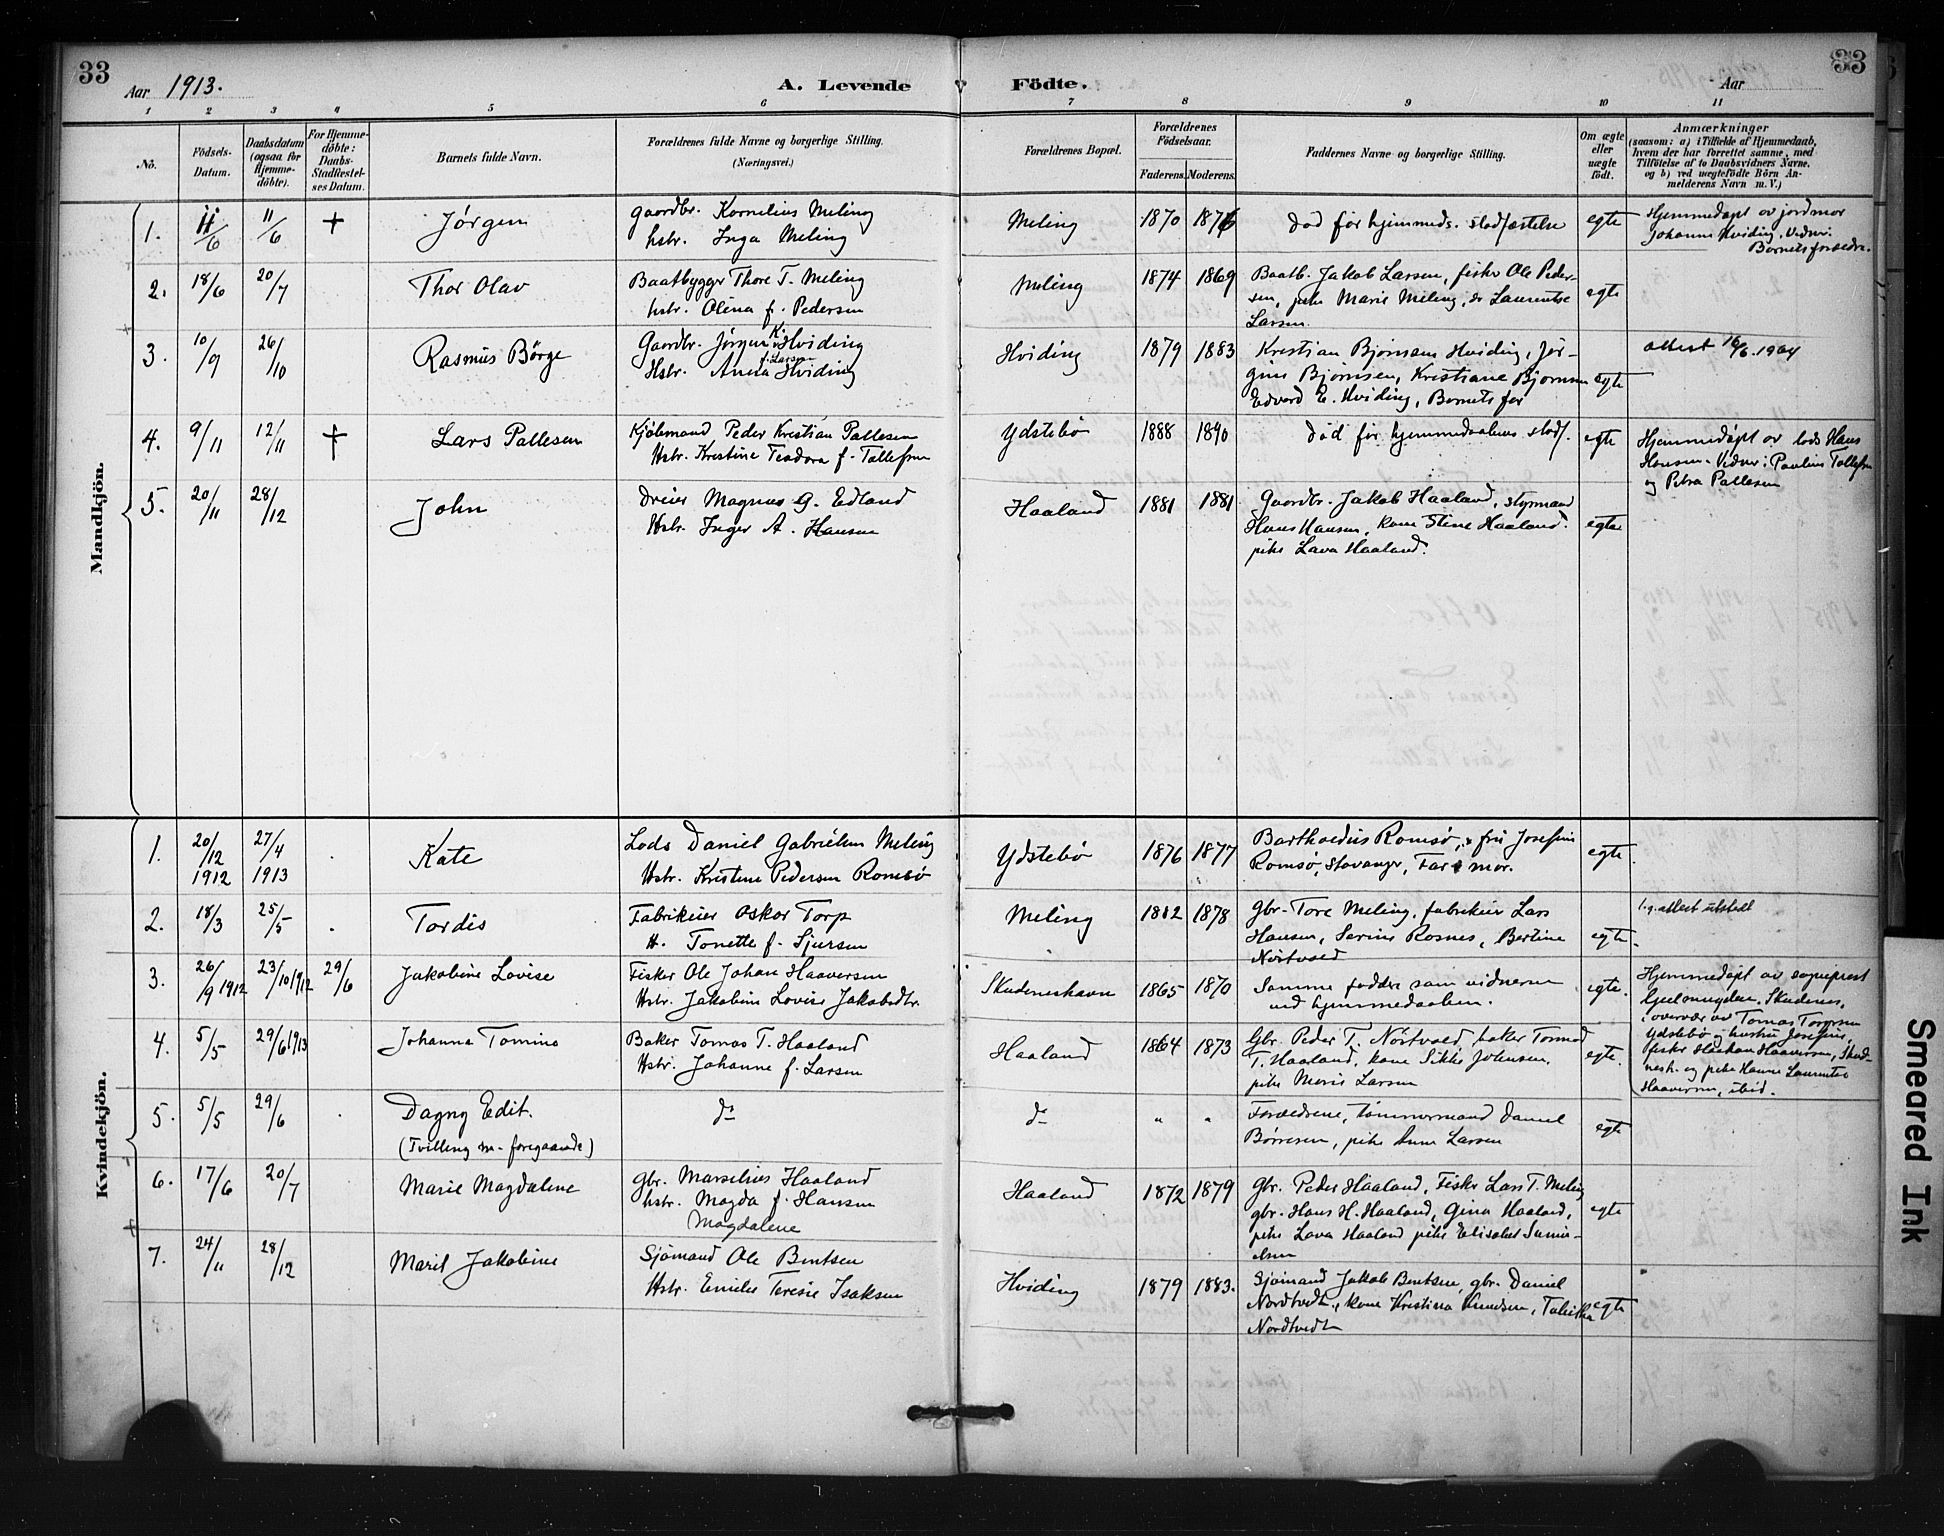 33
Aar 1913.
A. Levende Födte.
Aar
33
1 2 3 4 5 6 7 8 9 10 11
No.
Födsels-Datum.
Daabsdatum (ogsaa for Hjemme-döbte).
For Hjemme-döbte: Daabs-Stadfæstel-ses Datum.
Barnets fulde Navn.
Forældrenes fulde Navne og borgerlige Stilling.
(Næringsvei.)
Forældrenes Bopæl.
Forældrenes Födselsaar.
Faderens. Moderens.
Faddernes Navne og borgerlige Stilling.
Om ægte eller uægte födt.
Anmærkninger
(saasom: a) i Tilfælde af Hjemmedaab,
hvem der har forrettet samme, med
Tilföielse af to Daabsvidners Navne,
og b) ved uægtefödte Börn An-
melderens Navn m. V.)
Mandkjön.
1. 11/6 11/6 + Jörgen
Gaardbr. Kornelius Meling
hstr. Inga Meling
Meling 1870 1876
död för hjemmeds. stadfæstelse
egte
Hjemmedöpt av jordmor
Johanne Hviding. Vidner:
Barnets forældre.
2. 18/6 20/7 Thor Olav
Baatbygger Thore T. Meling
hstr. Olena f. Pedersen
Meling 1874 1869
Baatb. Jakob Larsen, fisker Ole Peder-
sen, pike Marie Meling, do Laurentse
Larsen.
egte
3. 10/9 26/10 Rasmus Börge
Gaardbr. Jörgen K. Hviding
Hstr. Anna f. Larsen Hviding
Hviding 1879 1883
Kristian Björnsen Hviding, Jör-
gine Bjornsen, Kristiane Bjornsen
Edvard E. Hviding, Barnets far
egte
attest 16/6.1964
4. 9/11 12/11 + Lars Pallesen
Kjöbmand Peder Kristian Pallesen
Hstr. Kristine Teodora f. Tallefsen
Ydstebö 1888 1890
död för hjemmedaabens stadf.
egte
Hjemmedöpt av lods Hans
Hansen. Vidner: Paulius Tallefsen
og Petra Pallesen
5. 20/11 28/12 John
Dreier Magnus G. Edland
Hstr. Inger A. Hansen
Haaland 1881 1881
Gaardbr. Jakob Haaland, styrmand
Hans Hansen, kone Stine Haaland.
pike Lava Haaland.
egte
Kvindekjön.
1. 20/12 1912 27/4 1913 Kate
Lods Daniel Gabrielsen Meling
Hstr. Kristine Pedersen Romsö
Ydstebö 1876 1877
Bartholdus Romsö, fru Josefine
Romsö, Stavanger, Far & mor.
egte
2. 18/3 25/5 Tordis
Fabrikeier Oskar Torp
H. Tonette f. Sjursen
Meling 1878
gbr. Tore Meling, fabrikeier Lars
Hansen, Serine Rosnes, Bertine
Nörtvedt
egte.
attest utstedt
3. 26/9 1912 23/10 1912 29/6 Jakobine Lovise
Fisker Ole Johan Haaversen
Hstr. Jakobine Lovise Jakobsdtr.
Skudeneshavn 1865 1870
Samme faddere som vidnerne
ved hjemmedaaben.
egte.
Hjemmedöpt av sogneprest
Skudenes,
i overvær av Tomas
Ydstebö og hustru Josefine,
fisker Haakon Haaversen, Skud-
nesh. og pike Hanne Laurentse
Haaversen, ibid.
4. 5/5 29/6 1913 Johanna Tomine
Baker Tomas T. Haaland
Hstr. Johanne f. Larsen
Haaland 1864 1873
Gbr. Peder T. Nörtvedt, baker Tormod
T. Haaland, kone Sikke Johnsen,
pike Marie Larsen
egte.
5. 5/5 29/6 Dagny Edit.
(Tvilling m. foregaaende)
do
do " "
Forældrene, tömmermand Daniel
Börresen, pike Anna Larsen
egte
6. 17/6 20/7 Marie Magdalene
gbr. Marselius Haaland
hstr. Magda f. Hansen
Magdalene
Haaland 1872 1879
gbr. Peder Haaland, Fisker Lars T. Meling
gbr. Hans H. Haaland, Gina Haaland,
pike Lava Haaland pike Elisabet
egte
7. 24/11 28/12 Marit Jakobine
Sjömand Ole Bentsen
Hstr. Emilie Teresie Isaksen
Hviding 1879 1883.
Sjömand Jakob Bentsen, gbr. Daniel
Nordtvedt, kone Kristina Knudsen, Tabitha
Nordtvedt
egte
Smeared Ink